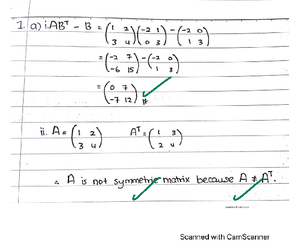 1. a) i. AB^T - B = (1 2; 3 4)(-2 1; 0 3) - (-2 0; 1 3)
= (-2 7; -6 15) - (-2 0; 1 3)
= (0 7; -7 12) #
ii. A = (1 2; 3 4) A^T = (1 3; 2 4)
∴ A is not symmetric matrix because A ≠ A^T.
Scanned with CamScanner